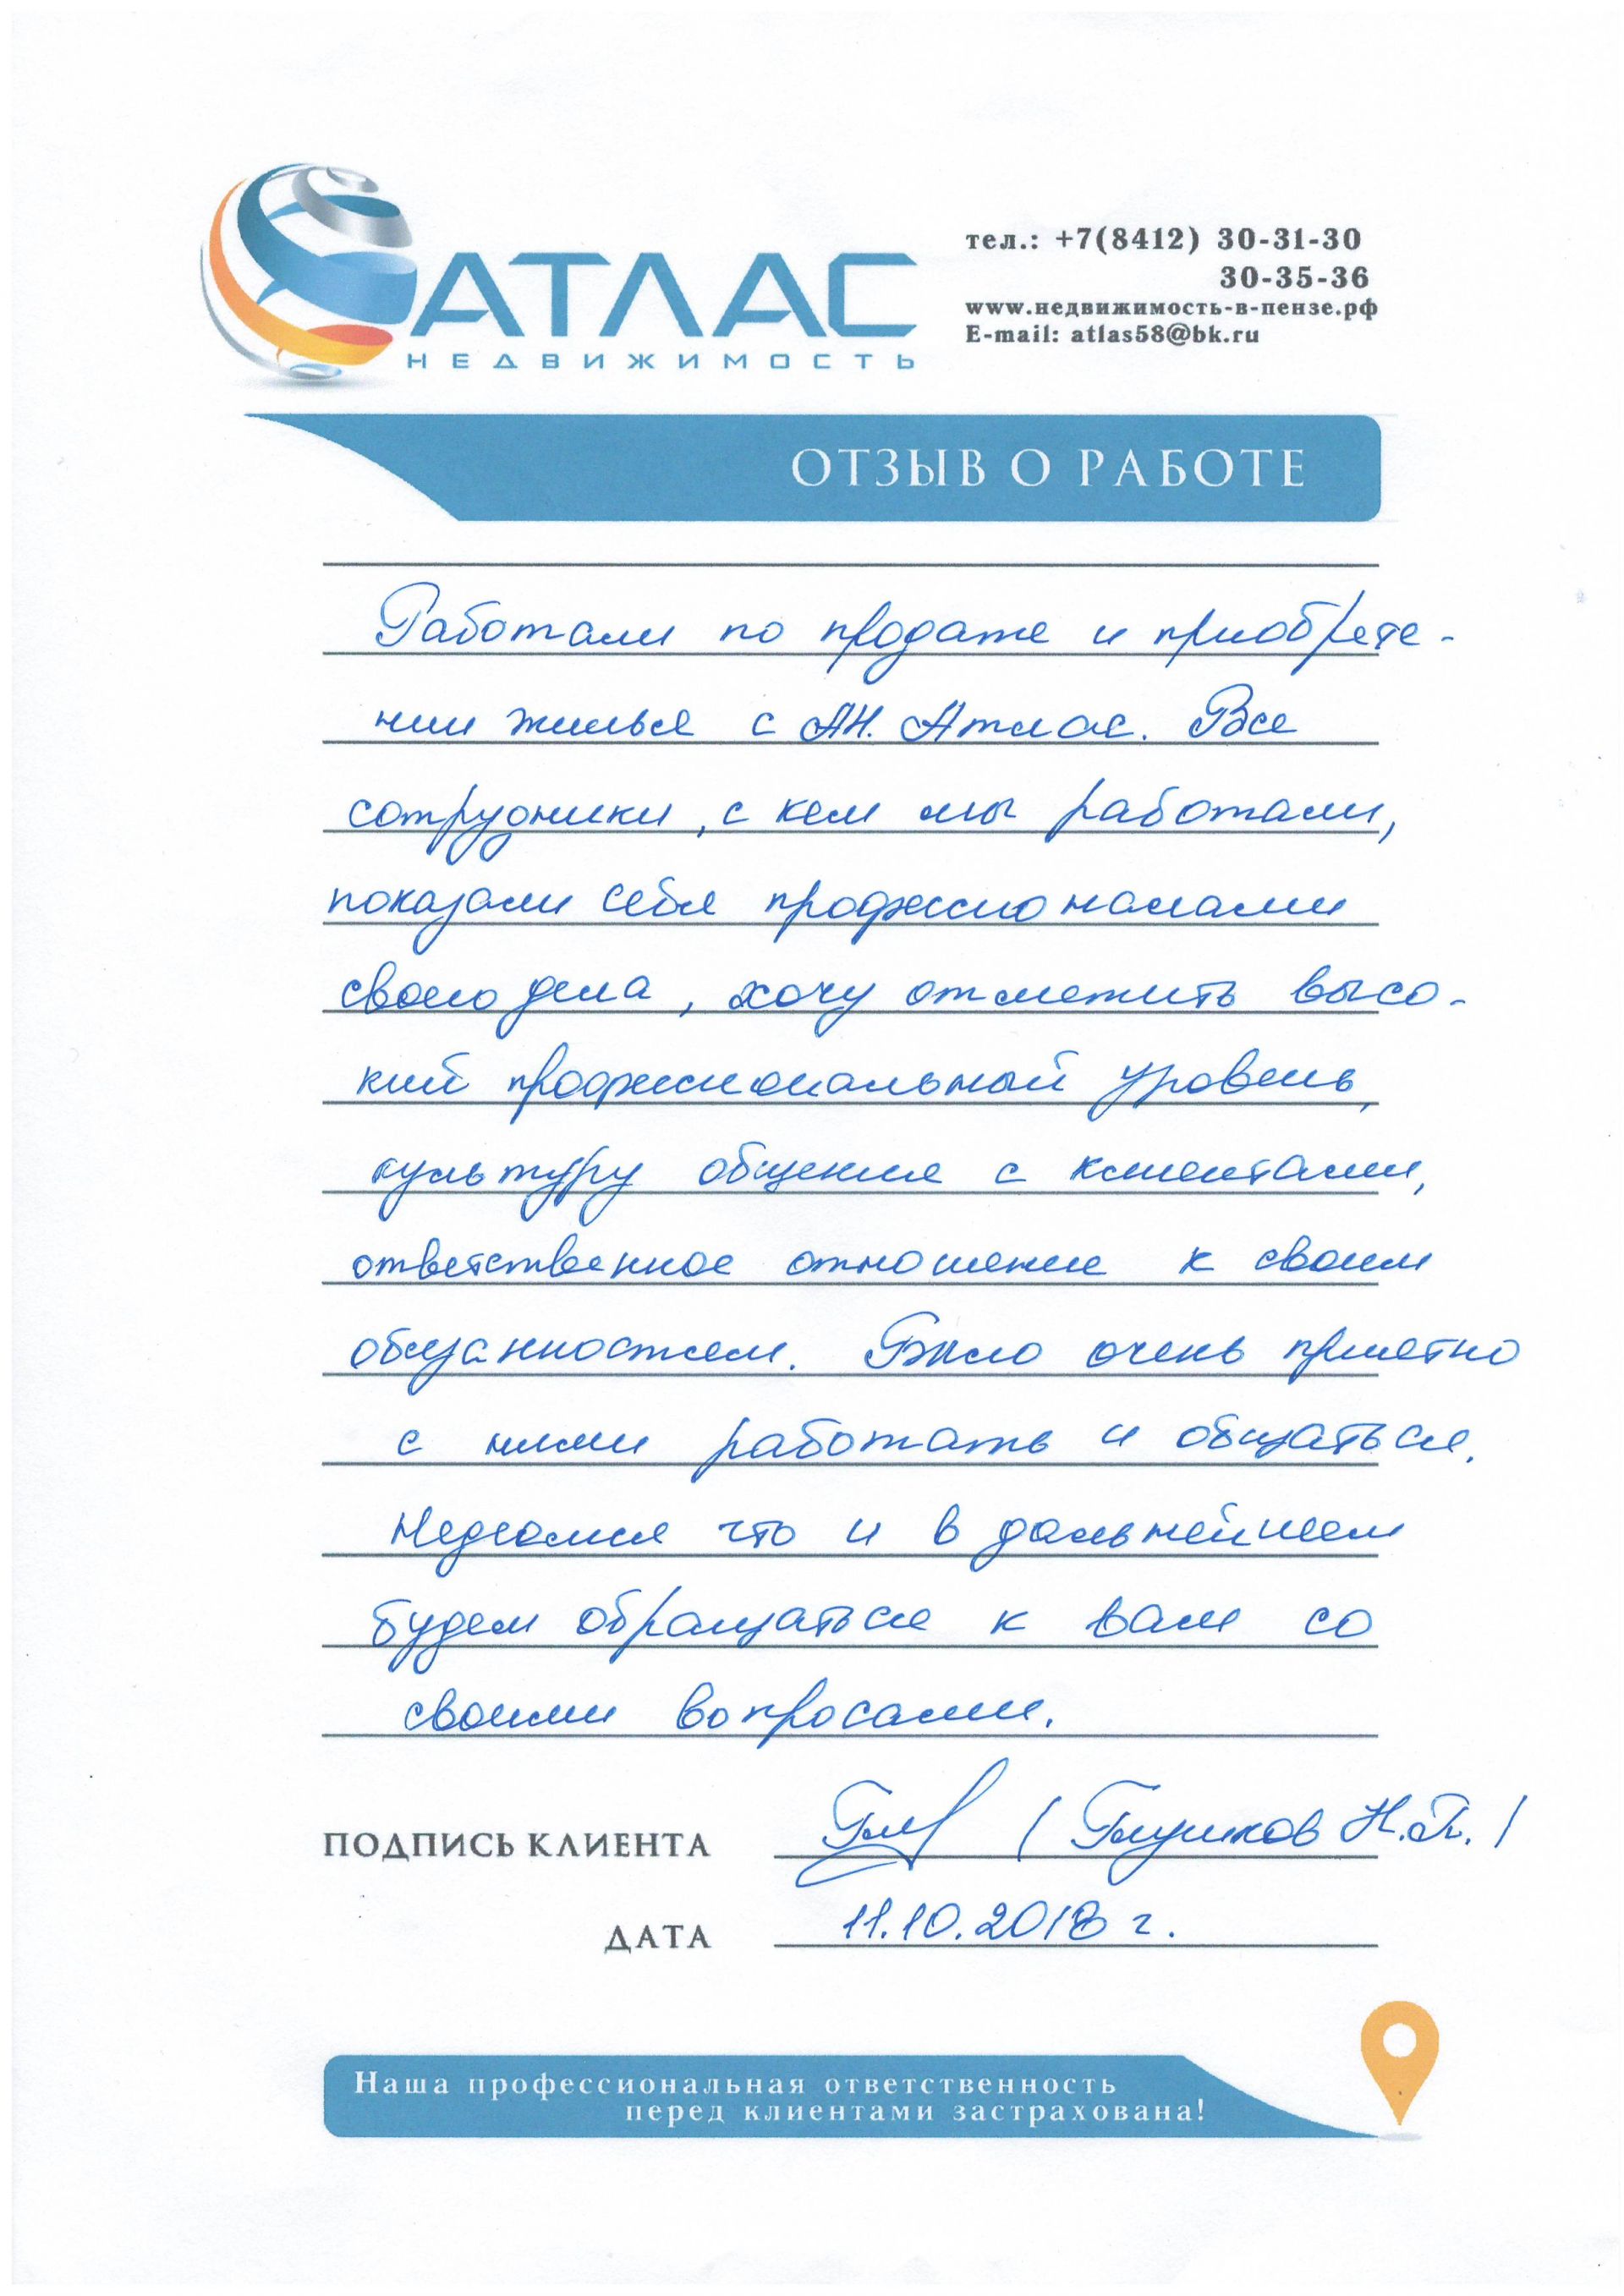 АТЛАС
НЕДВИЖИМОСТЬ
тел.: +7(8412) 30-31-30
30-35-36
www.недвижимость-в-пензе.рф
E-mail: atlas58@bk.ru
ОТЗЫВ О РАБОТЕ
Работали по продаже и приобрете-
нии жилья с АН. Атлас. Все
сотрудники, с кем мы работали,
показали себя профессионалами
своего дела, хочу отметить высо-
кий профессиональный уровень,
культуру общения с клиентами,
ответственное отношение к своим
обязанностям. Было очень приятно
с ними работать и общаться.
Надеемся что и в дальнейшем
будем обращаться к вам со
своими вопросами.
ПОДПИСЬ КЛИЕНТА (Глушков Н.П.)
ДАТА 11.10.2018 г.
Наша профессиональная ответственность
перед клиентами застрахована!